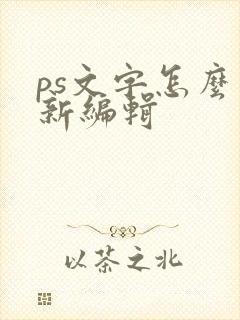 ps文字怎麼
新編輯
以茶之北